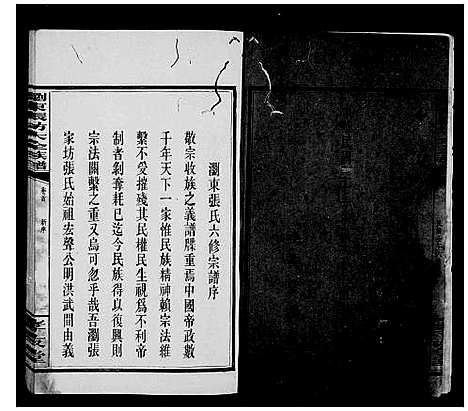 瀏東張氏六修宗譜序
敬宗收族之義譜牒重焉中國帝政數
千年天下一家惟民族精神賴宗法維
繫不受摧殘其民權民生視為不利帝
制者剝奪耗已迄今民族得以復興則
宗法關繫之重又烏可忽乎哉吾瀏張
家坊張氏始祖宏聲公明洪武間由義
卷首
新序